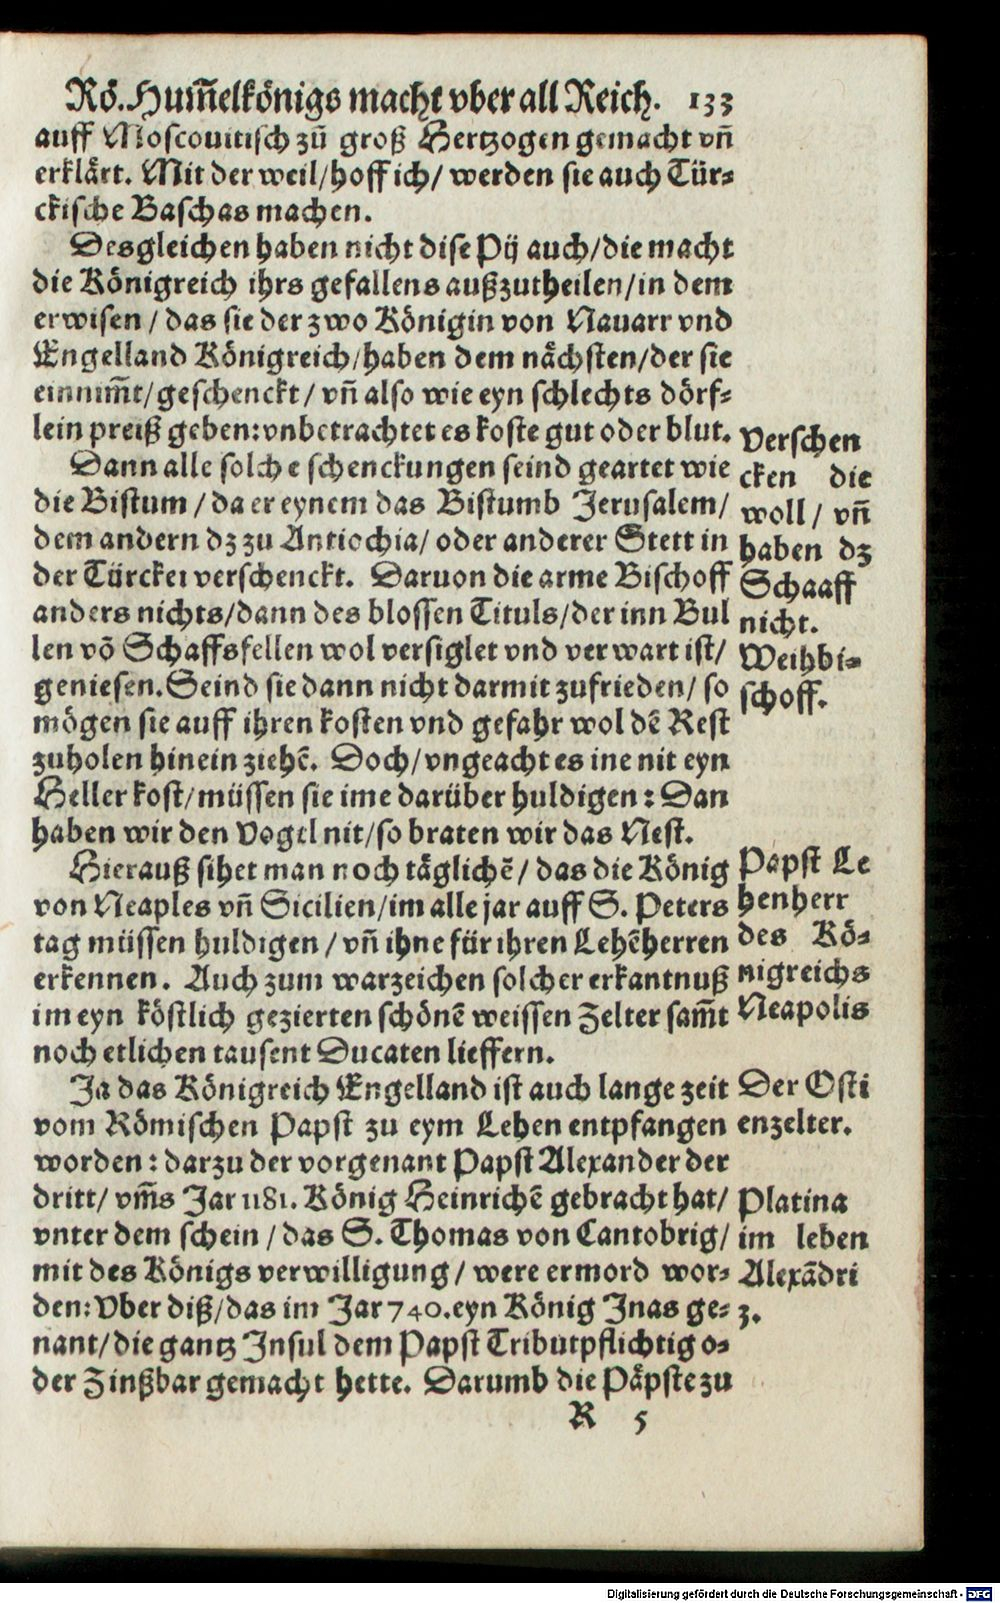 Rö. Hum̃elkönigs macht vber all Reich. 133
auff Moscouitisch zů groß Hertzogen gemacht vñ
erklärt. Mit der weil/ hoff ich/ werden sie auch Tür-
ckische Baschas machen.
Desgleichen haben nicht dise Pij auch/ die macht
die Königreich ihrs gefallens außzutheilen/ in dem
erwisen / das sie der zwo Königin von Nauarr vnd
Engelland Königreich/ haben dem nächsten/ der sie
einnim̃t/ geschenckt/ vñ also wie eyn schlechts dörf-
lein preiß geben: vnbetrachtet es koste gut oder blut.
Dann alle solche schenckungen seind geartet wie
die Bistum / da er eynem das Bistumb Jerusalem/
dem andern dz zu Antiochia/ oder anderer Stett in
der Türckei verschenckt. Daruon die arme Bischoff
anders nichts/ dann des blossen Tituls/ der inn Bul
len võ Schaffsfellen wol versiglet vnd verwart ist/
geniesen. Seind sie dann nicht darmit zufrieden/ so
mögen sie auff ihren kosten vnd gefahr wol dẽ Rest
zuholen hinein ziehẽ. Doch/ vngeacht es ine nit eyn
Heller kost/ müssen sie ime darüber huldigen: Dan
haben wir den Vogel nit/ so braten wir das Nest.
Verschen
cken die
woll/ vñ
haben dz
Schaaff
nicht.
Weihbi-
schoff.
Hierauß sihet man noch täglichẽ/ das die König
von Neaples vñ Sicilien/ im alle jar auff S. Peters
tag müssen huldigen / vñ ihne für ihren Lehẽherren
erkennen. Auch zum warzeichen solcher erkantnuß
im eyn köstlich gezierten schönẽ weissen Zelter sam̃t
noch etlichen tausent Ducaten lieffern.
Papst Le
henherr
des Kö-
nigreichs
Neapolis
Ja das Königreich Engelland ist auch lange zeit
vom Römischen Papst zu eym Lehen entpfangen
worden: darzu der vorgenant Papst Alexander der
dritt/ vm̃s Jar 1181. König Heinrichẽ gebracht hat/
vnter dem schein / das S. Thomas von Cantobrig/
mit des Königs verwilligung / were ermord wor-
den: Vber diß/ das im Jar 740. eyn König Inas ge-
nant/ die gantz Insul dem Papst Tributpflichtig o-
der Zinßbar gemacht hette. Darumb die Päpste zu
Der Osti
enzelter.
Platina
im leben
Alexãdri
3.
R 5
Digitalisierung gefördert durch die Deutsche Forschungsgemeinschaft - DFG